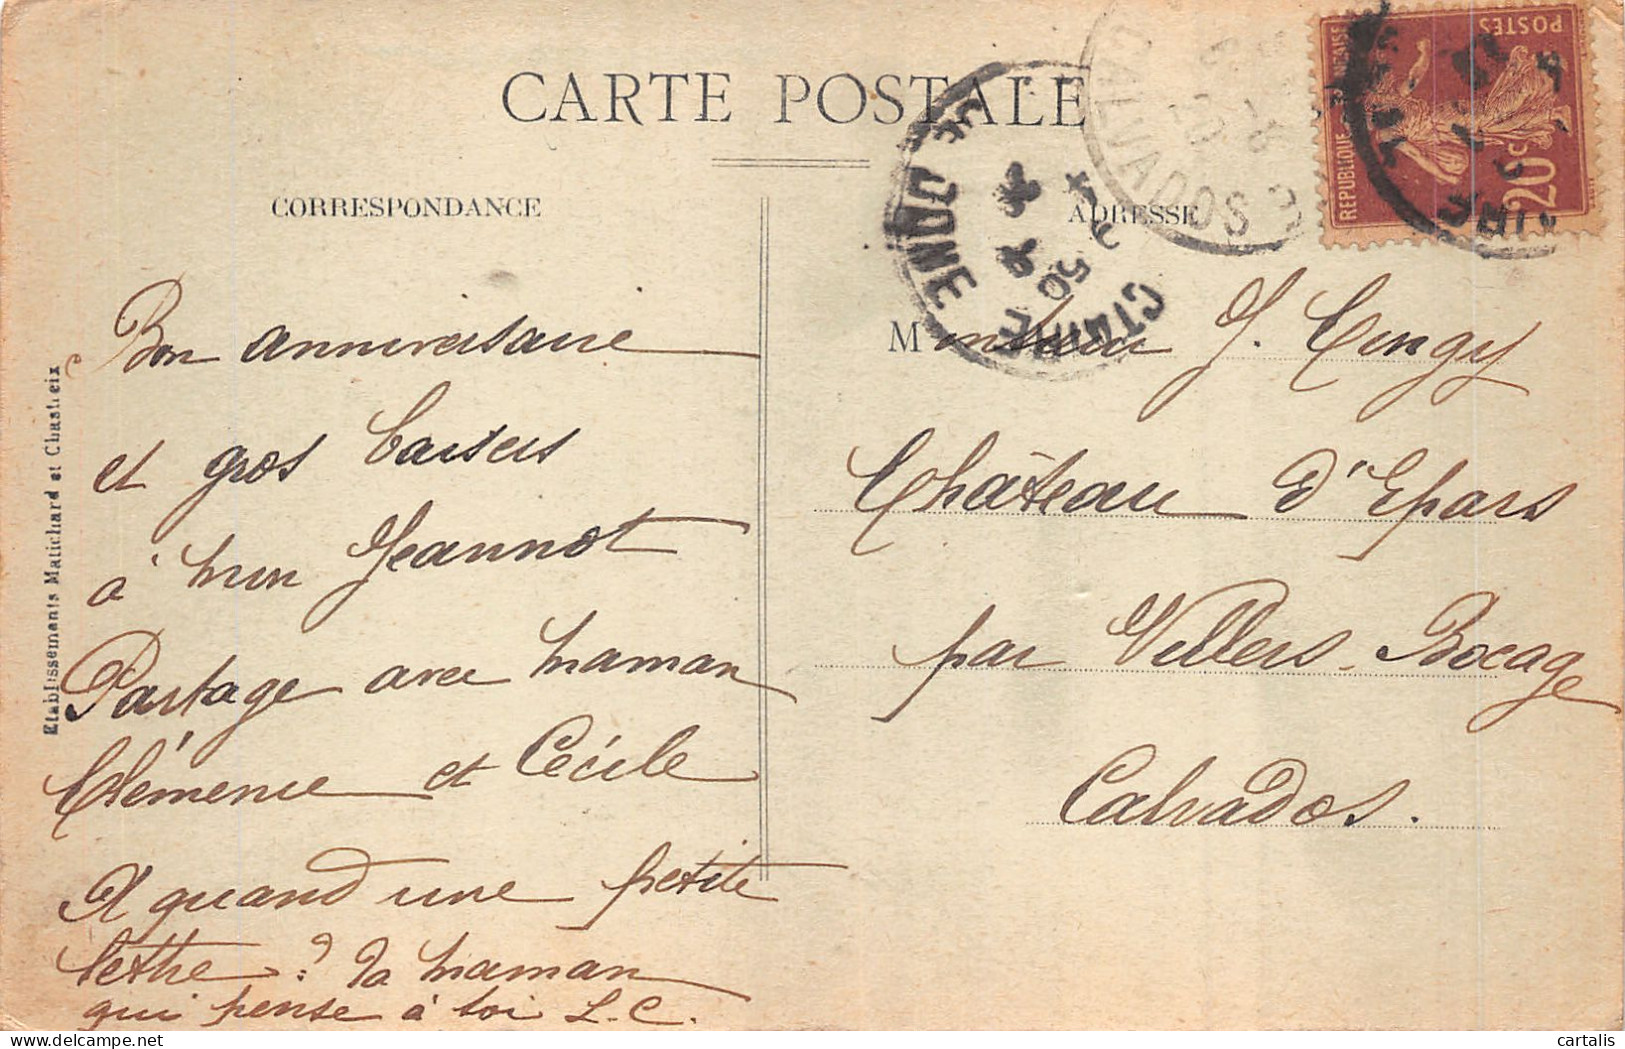 CARTE POSTALE
CORRESPONDANCE
ADRESSE
Bon anniversaire
et gros baisers
à mon Jeannot
Partage avec maman
Clémence et Cécile
A quand une petite
lettre ? Ta maman
qui pense à toi L.C.
Monsieur J. Cengy
Château d'Epars
par Villers-Bocage
Calvados.
Etablissements Matichard et Chastreix
REPUBLIQUE
POSTES
20c
CALVADOS
50
cartalis